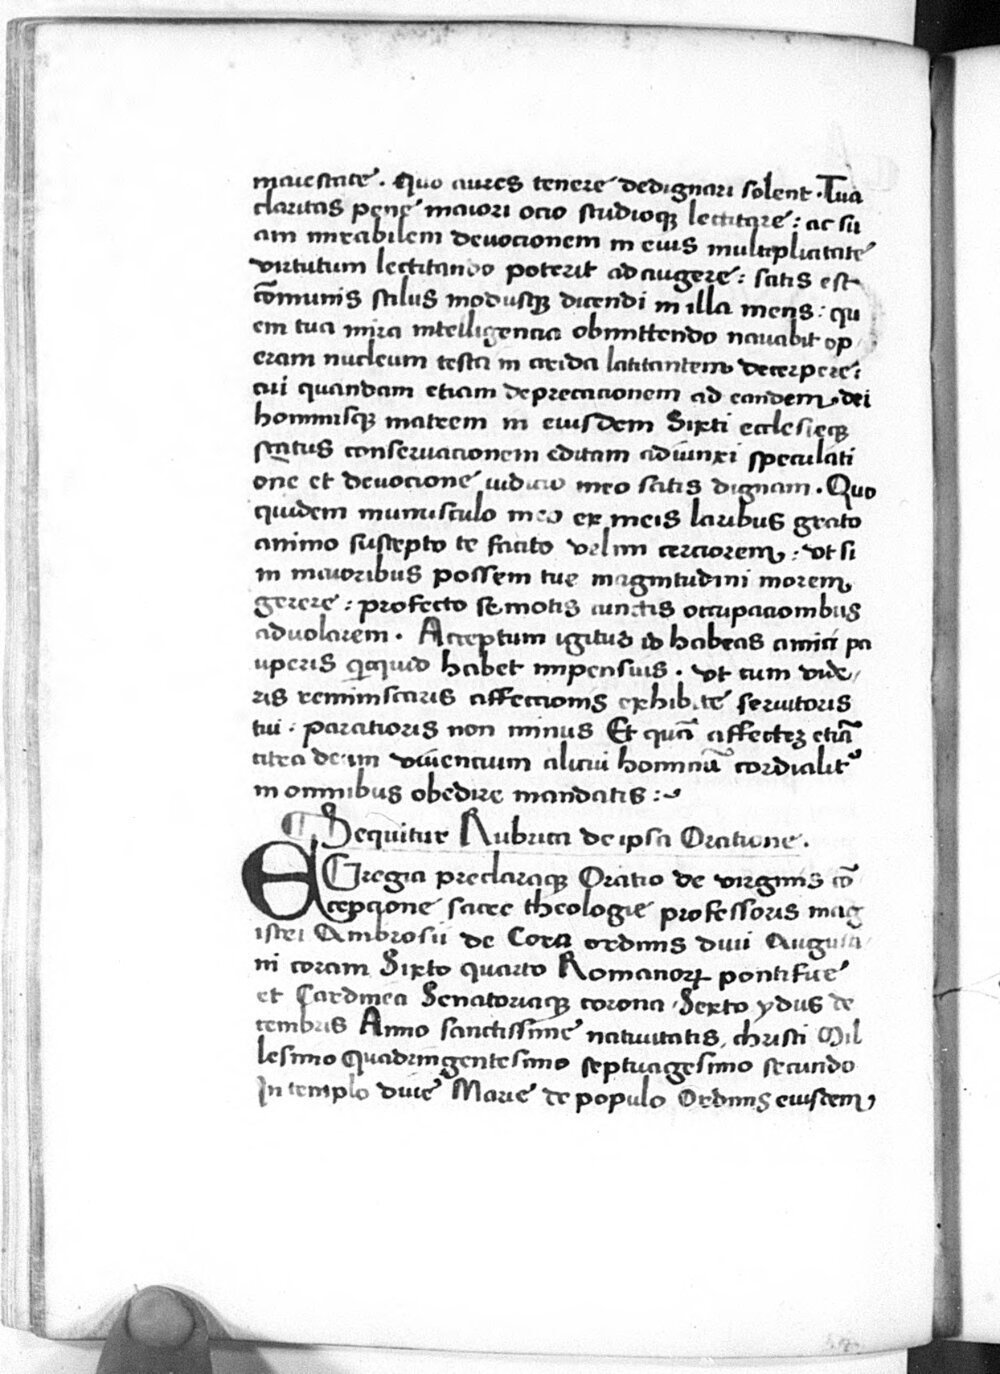 maiestate. Quo aures tenere dedignari solent. Tua
claritas pene maiori ocio studioqꝫ lectitare: ac su
am mirabilem deuocionem in eius multiplicitate
virtutum lectitando poterit adaugere: satis est
co̅munis stilus modusqꝫ dicendi in illa mens: qu
em tua mira intelligencia obmittendo nauabit op
eram nucleum testa in arida latitantem decerpere:
cui quandam etiam deprecacionem ad eandem dei
hominisqꝫ matrem in eiusdem Sixti ecclesieqꝫ
status conseruacionem editam adiunxi speculati
one et deuocione iudicio meo satis dignam. Quo
quidem munusculo meo ex meis laribus grato
animo suscepto te facito velim cerciorem: vt si
in maioribus possem tue magnitudini morem
gerere: profecto semotis cunctis occupacionibus
aduolarem. Acceptum igitur id habeas amici pa
uperis quicquid habet impensius. vt cum vide
ris reminiscaris affectionis exhibite seruitoris
tui: paratioris non minus Et qua̅ affectez etia̅
citra deum viuencium alicui hominu̅ cordialit᷑
in omnibus obedire mandatis:
Sequitur Rubrica de ipsa Oratione.
EGregia preclaraqꝫ Oratio de virginis co̅
cepcione sacre theologie professoris mag
istri Ambrosii de Cora ordinis diui Augusti
ni coram Sixto quarto Romanorꝝ pontifice
et Cardinea Senatoriaqꝫ corona. Sexto ydus de
cembris Anno sanctissime natiuitatis christi Mil
lesimo Quadringentesimo septuagesimo secundo
In templo diue Marie de populo Ordinis eiusdem